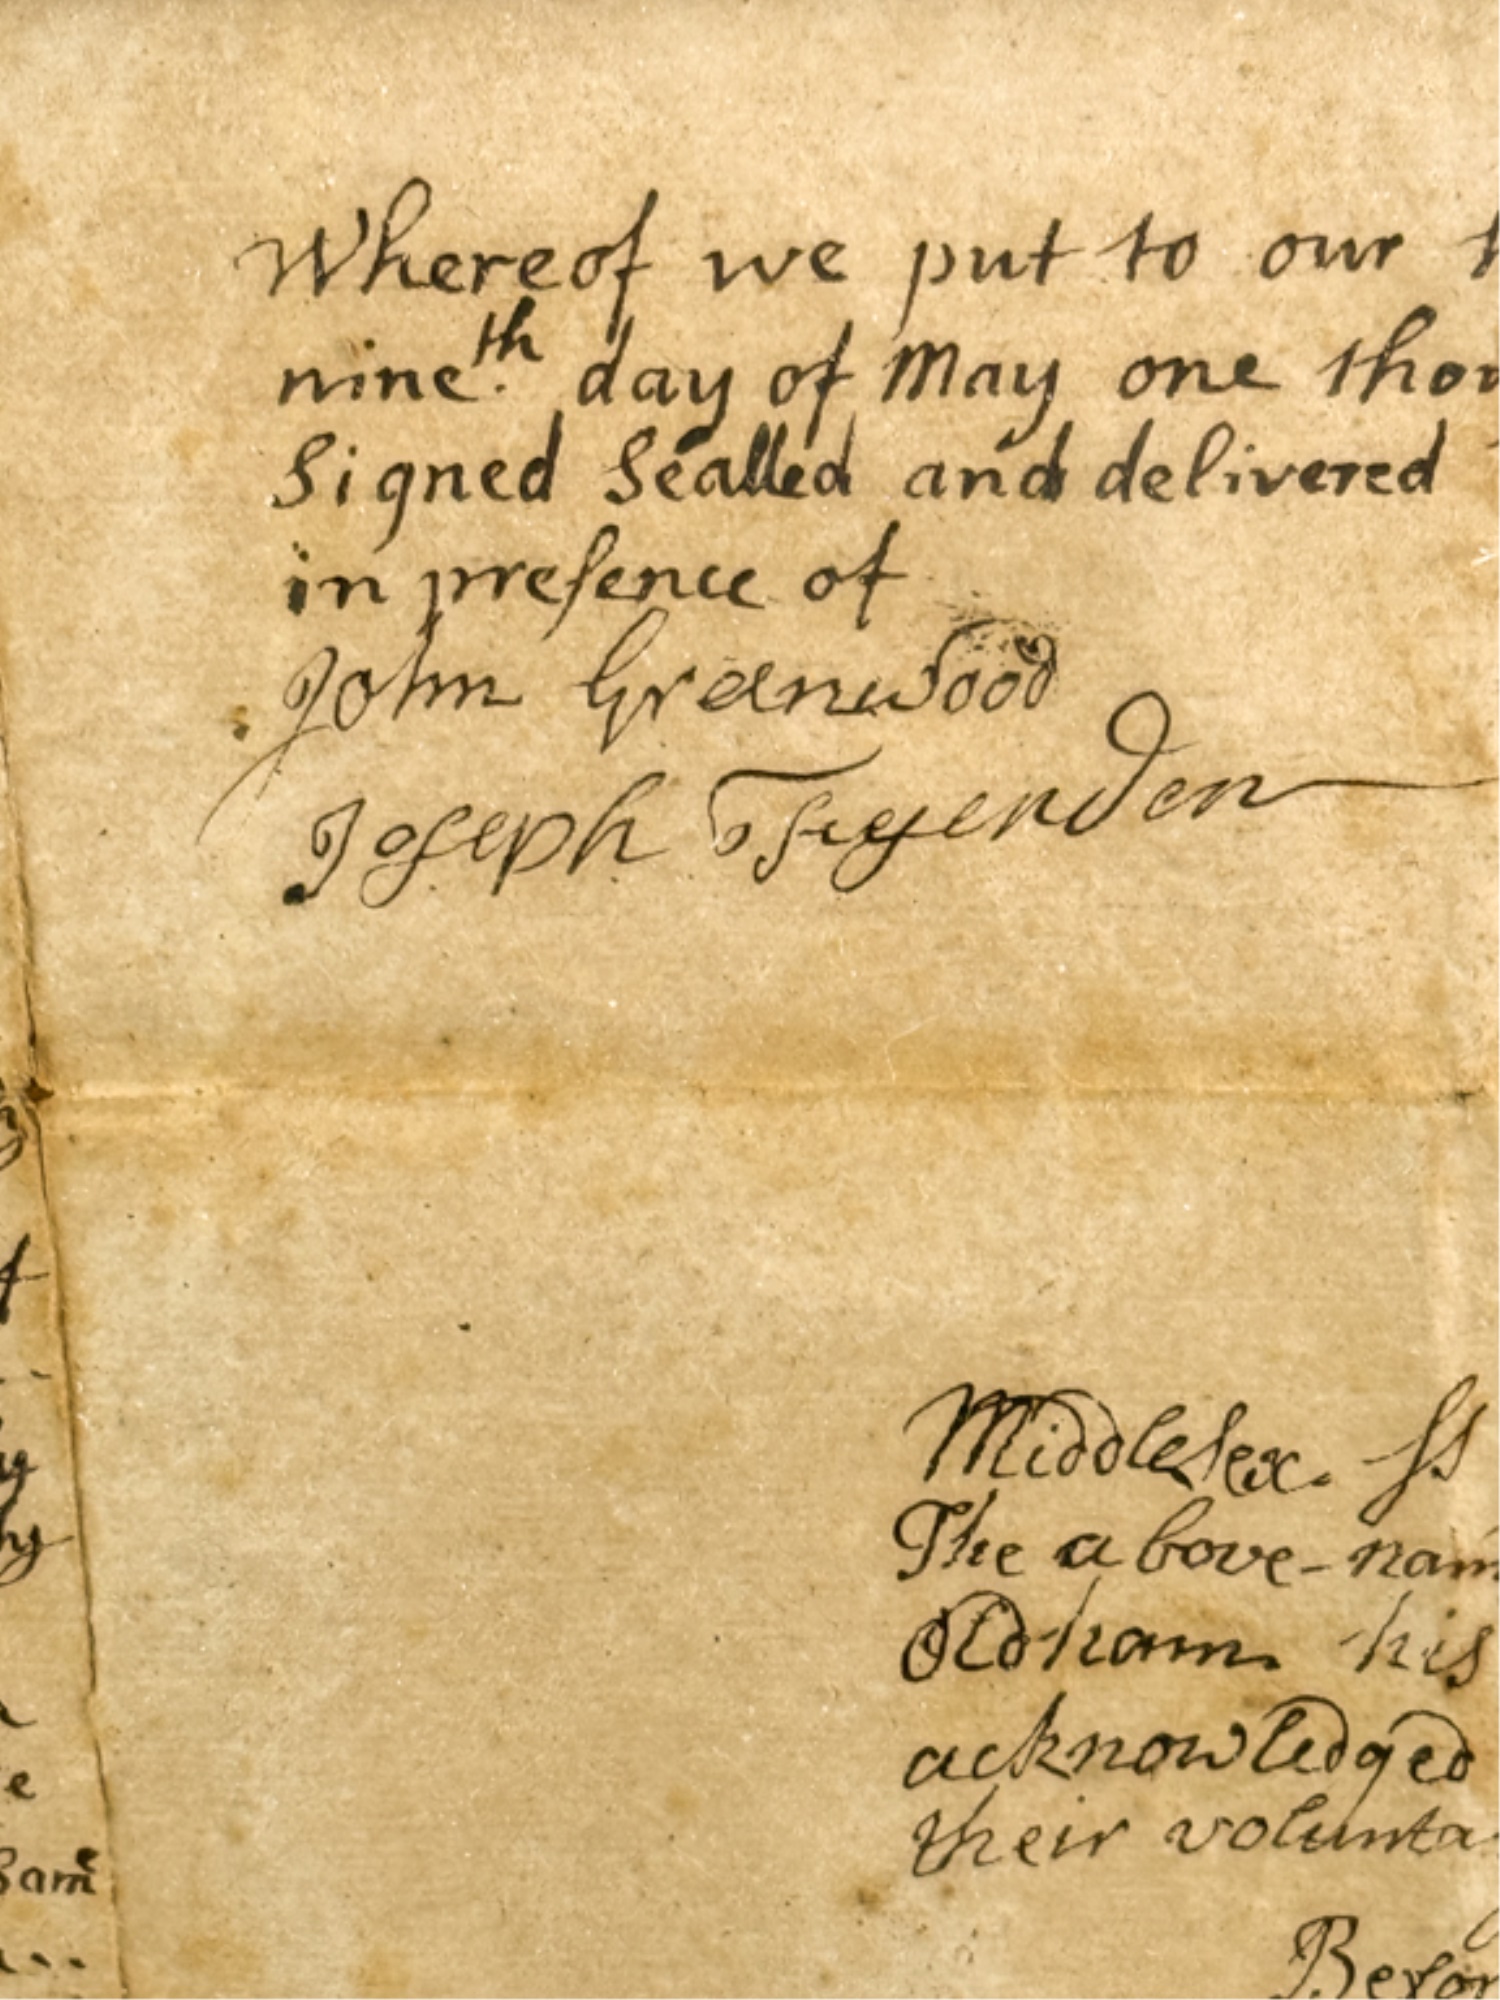 Whereof we put to our
nineth. day of May one thou
Signed Sealled and delivered
in presence of
John Greenwood
Joseph
Middlesex. Ss
The above-nam
Oldham his
acknowledged
their volunta
Befor
Same